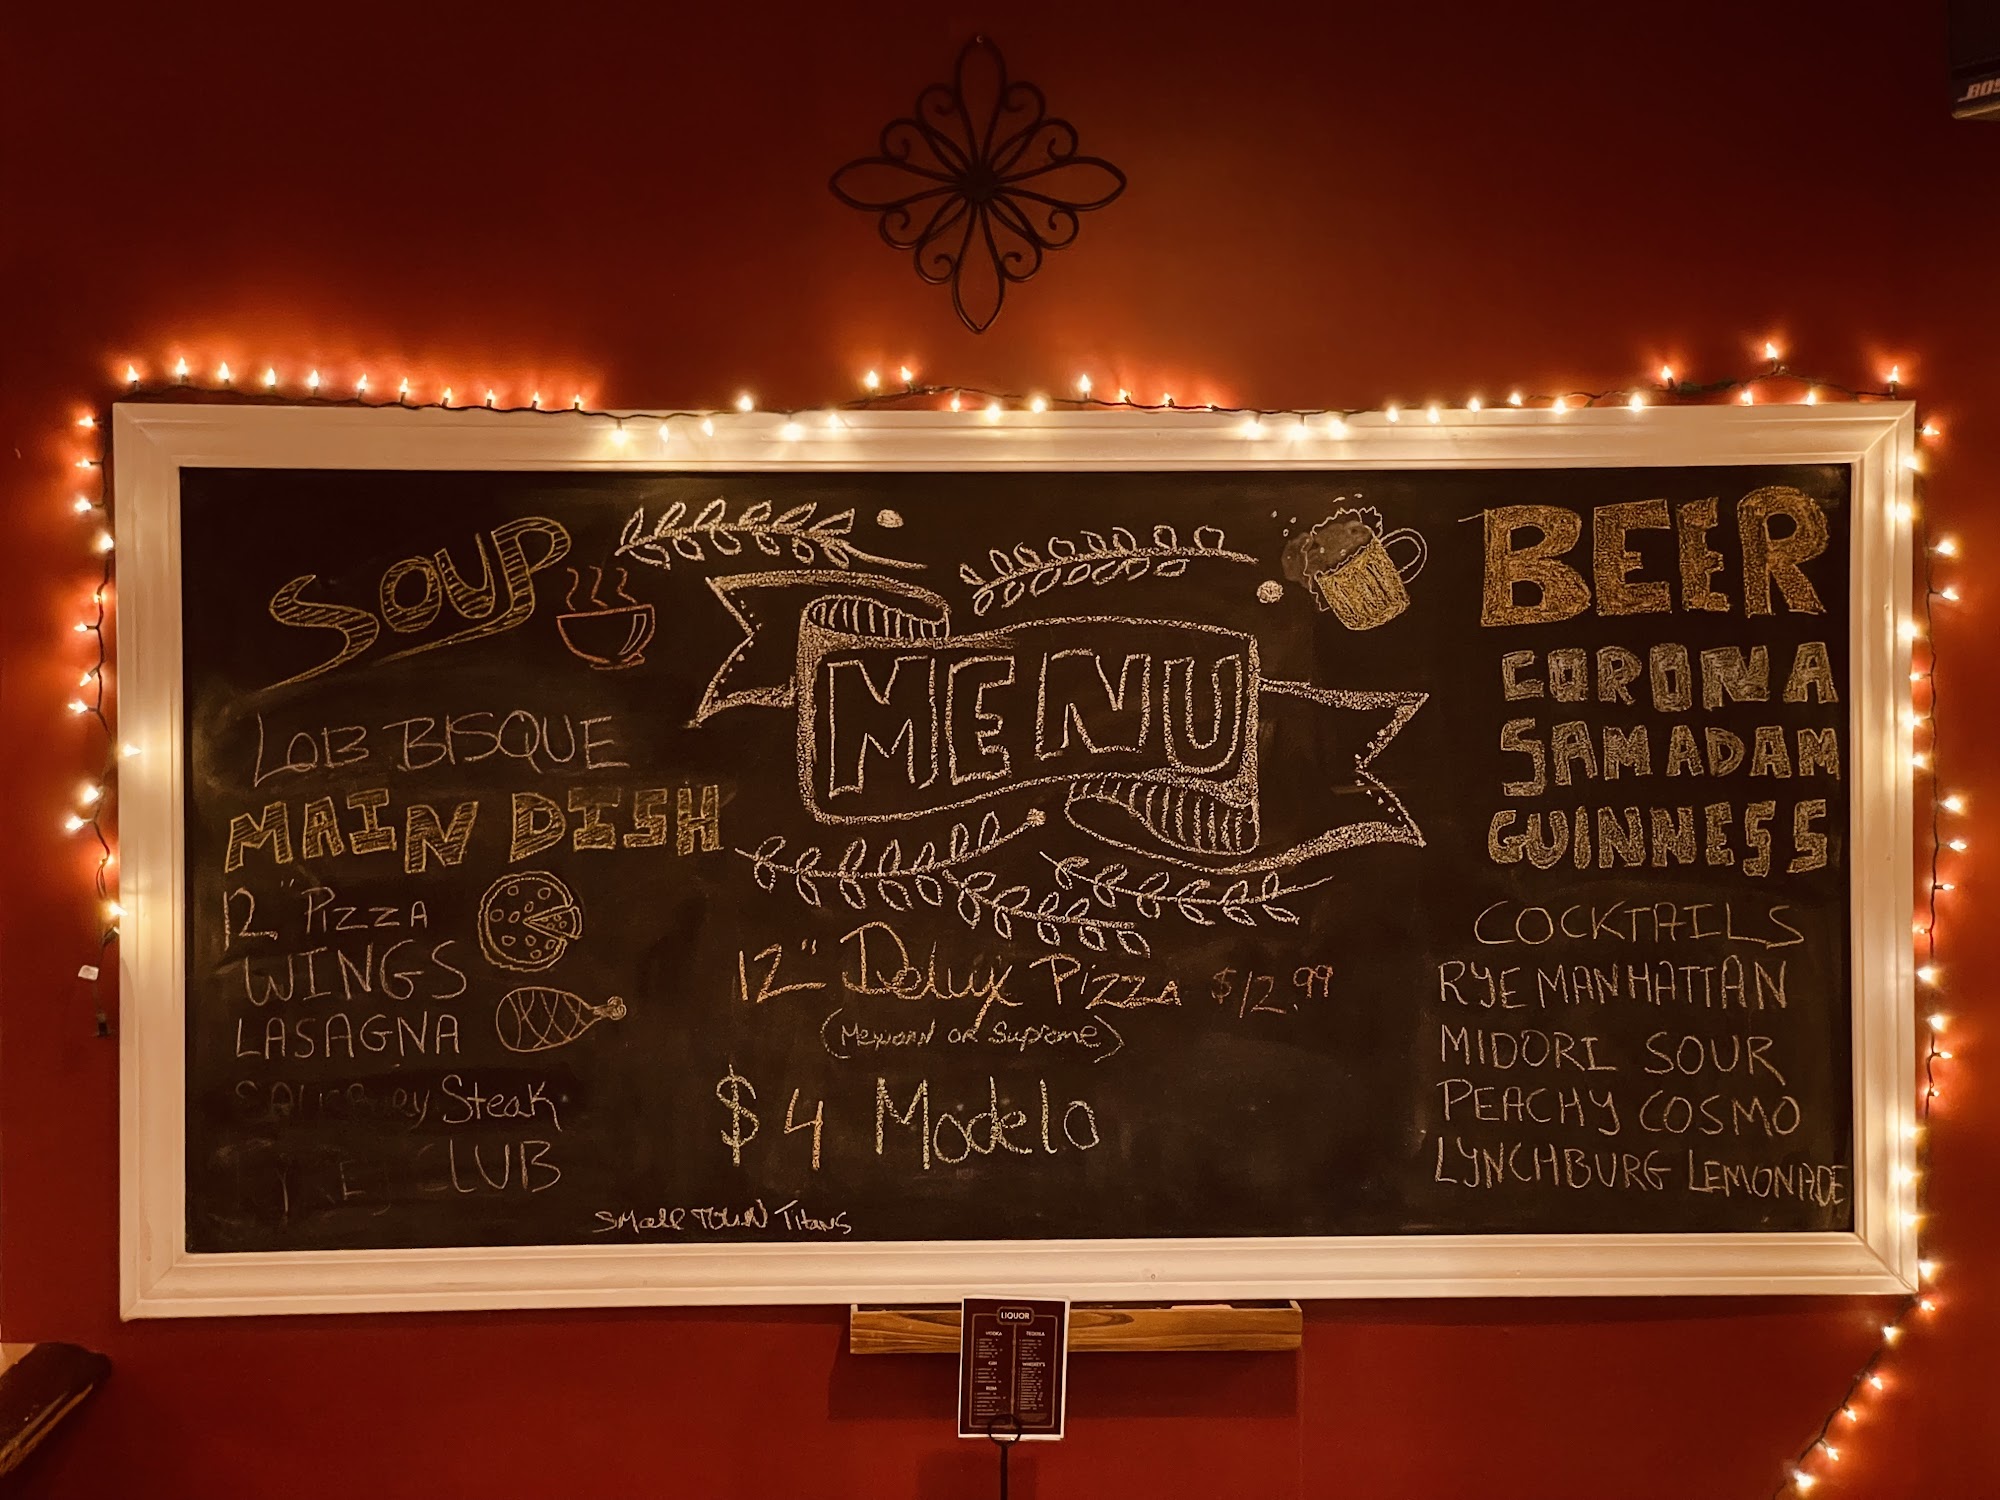 SOUP
LOB BISQUE
MAIN DISH
12" PIZZA
WINGS
LASAGNA
SALISBURY Steak
CLUB
MENU
12" Delux Pizza $12.99
(Mexican or Supreme)
$4 Modelo
Small Town Titans
BEER
CORONA
SAM ADAM
GUINNESS
COCKTAILS
RYE MANHATTAN
MIDORI SOUR
PEACHY COSMO
LYNCHBURG LEMONADE
LIQUOR
VODKA
TEQUILA
GIN
WHISKEY'S
RUM